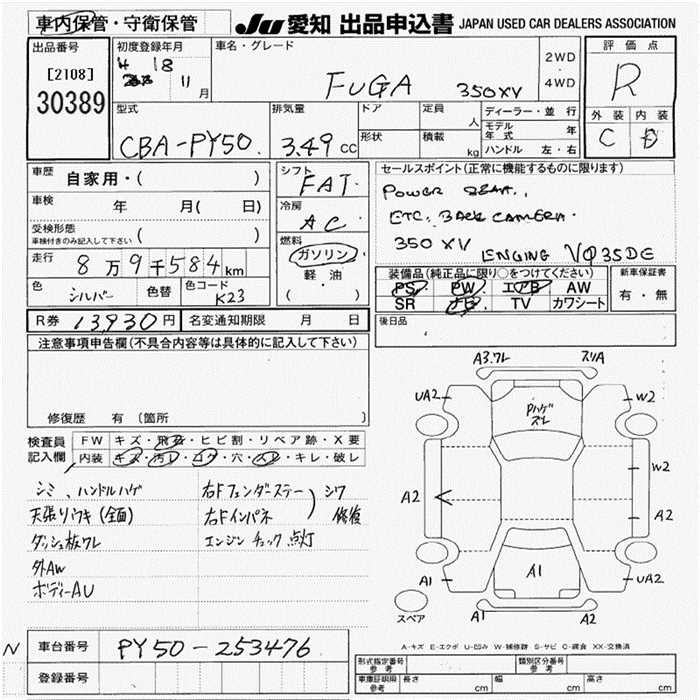 車内保管・守衛保管
JU 愛知 出品申込書 JAPAN USED CAR DEALERS ASSOCIATION
出品番号
[2108]
30389
初度登録年月
H 18
11 月
車名・グレード
FUGA 350XV
2WD
・
4WD
評価点
R
外装 内装
C D
型式
CBA-PY50
排気量
3.49 CC
ドア
形状
定員 人
積載 kg
ディーラー・並行
モデル年式 年
ハンドル 左・右
車歴 自家用・( )
車検 年 月( 日)
受検形態
車検付きのみ記入して下さい ( )
走行 8万9千584km
色 シルバー 色替
色コード K23
シフト FAT
冷房 AC
燃料
ガソリン
軽・油
( )
セールスポイント(正常に機能するものに限ります)
POWER SEAT.,
ETC. BACK CAMERA.
350 XV
ENGINE VQ35DE
装備品(純正品に限り○をつけてください)
PS PW エアB AW
SR ナビ TV カワシート
新車保証書
有・無
R券 13,930円
名変通知期限 月 日
後日品
注意事項申告欄(不具合内容等は具体的に記入して下さい)
修復歴 有 〔箇所 〕
検査員記入欄
FW キズ・飛石・ヒビ割・リペア跡・X要
内装 キズ・汚レ・コゲ・穴・スレ・キレ・破レ
シミ、ハンドルハゲ
天張リウキ(全面)
ダッシュ板ワレ
外AW
ボディーAU
右Fフェンダーステー
右Fインパネ
) シワ
修復
エンジンチェック点灯
A3.ワレ
スリA
UA2
W2
Pハゲ
ズレ
W2
A2
A2
A1
A1
UA2
スペア
A1
A2
N
車台番号 PY50-253476
登録番号
A-キズ E-エクボ U-凹み W-補修跡 S-サビ C-腐食 XX-交換済
形式指定番号
参考
類別区分番号
参考
車庫証明用
参考
長さ cm
幅 cm
高さ cm